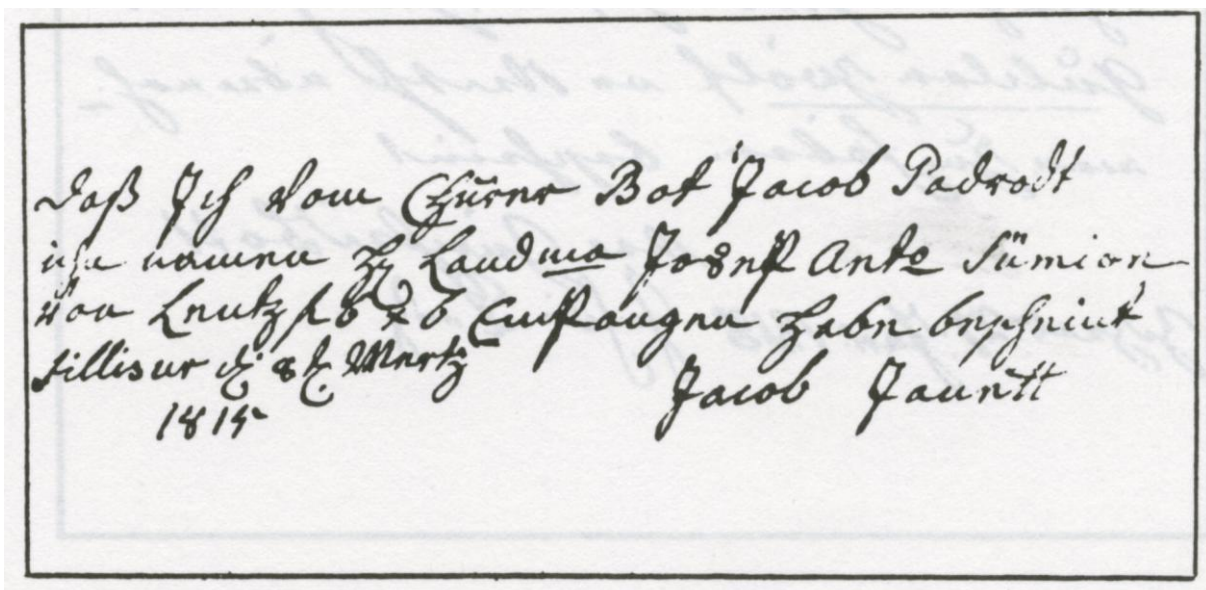 daß Ich Vom Churer Bot Jacob Padrodt
im namen H Landma Joseph Anto Simion
Von Lentz f Empfangen habe bescheint
tillisur d 8t Mertz
1815 Jacob Jauett